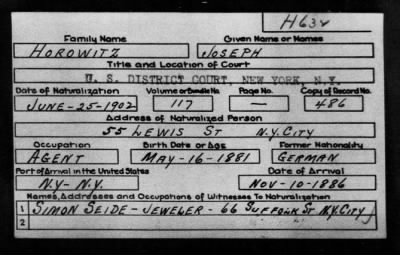 H632
Family Name Given Name or Names
HOROWITZ JOSEPH
Title and Location of Court
U. S. DISTRICT COURT, NEW YORK, N.Y.
Date of Naturalization Volume or Bundle No. Page No. Copy of Record No.
JUNE-25-1902 117 — 486
Address of Naturalized Person
55 LEWIS ST N.Y. CITY
Occupation Birth Date or Age Former Nationality
AGENT MAY-16-1881 GERMAN
Port of Arrival in the United States Date of Arrival
N.Y-N.Y. NOV-10-1886
Names, Addresses and Occupations of Witnesses To Naturalization
1 SIMON SEIDE-JEWELER-66 SUFFOLK ST N.Y. CITY
2